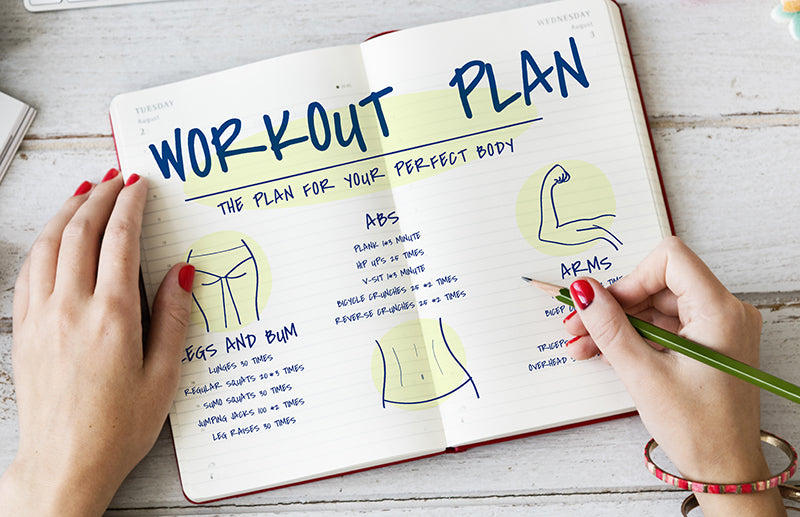 TUESDAY
August
2
WEDNESDAY
August
3
WORKOUT PLAN
THE PLAN FOR YOUR PERFECT BODY
LEGS AND BUM
LUNGES 30 TIMES
REGULAR SQUATS 20*3 TIMES
SUMO SQUATS 30 TIMES
JUMPING JACKS 100 *2 TIMES
LEG RAISES 30 TIMES
ABS
PLANK 1*3 MINUTE
HIP UPS 25 TIMES
V-SIT 1*3 MINUTE
BICYCLE CRUNCHES 25 *2 TIMES
REVERSE CRUNCHES 25 *2 TIMES
ARMS
TIMES
BICEP
TRICEPS
OVERHEAD